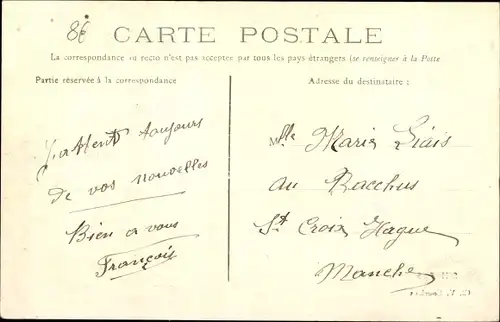 86
CARTE POSTALE
La correspondance au recto n'est pas acceptée par tous les pays étrangers (se renseigner à la Poste
Partie réservée à la correspondance
Adresse du destinataire :
toujours
de vos nouvelles
Bien a vous
François
Mlle Marie Liais
au Bacchus
St Croix Hague
Manche